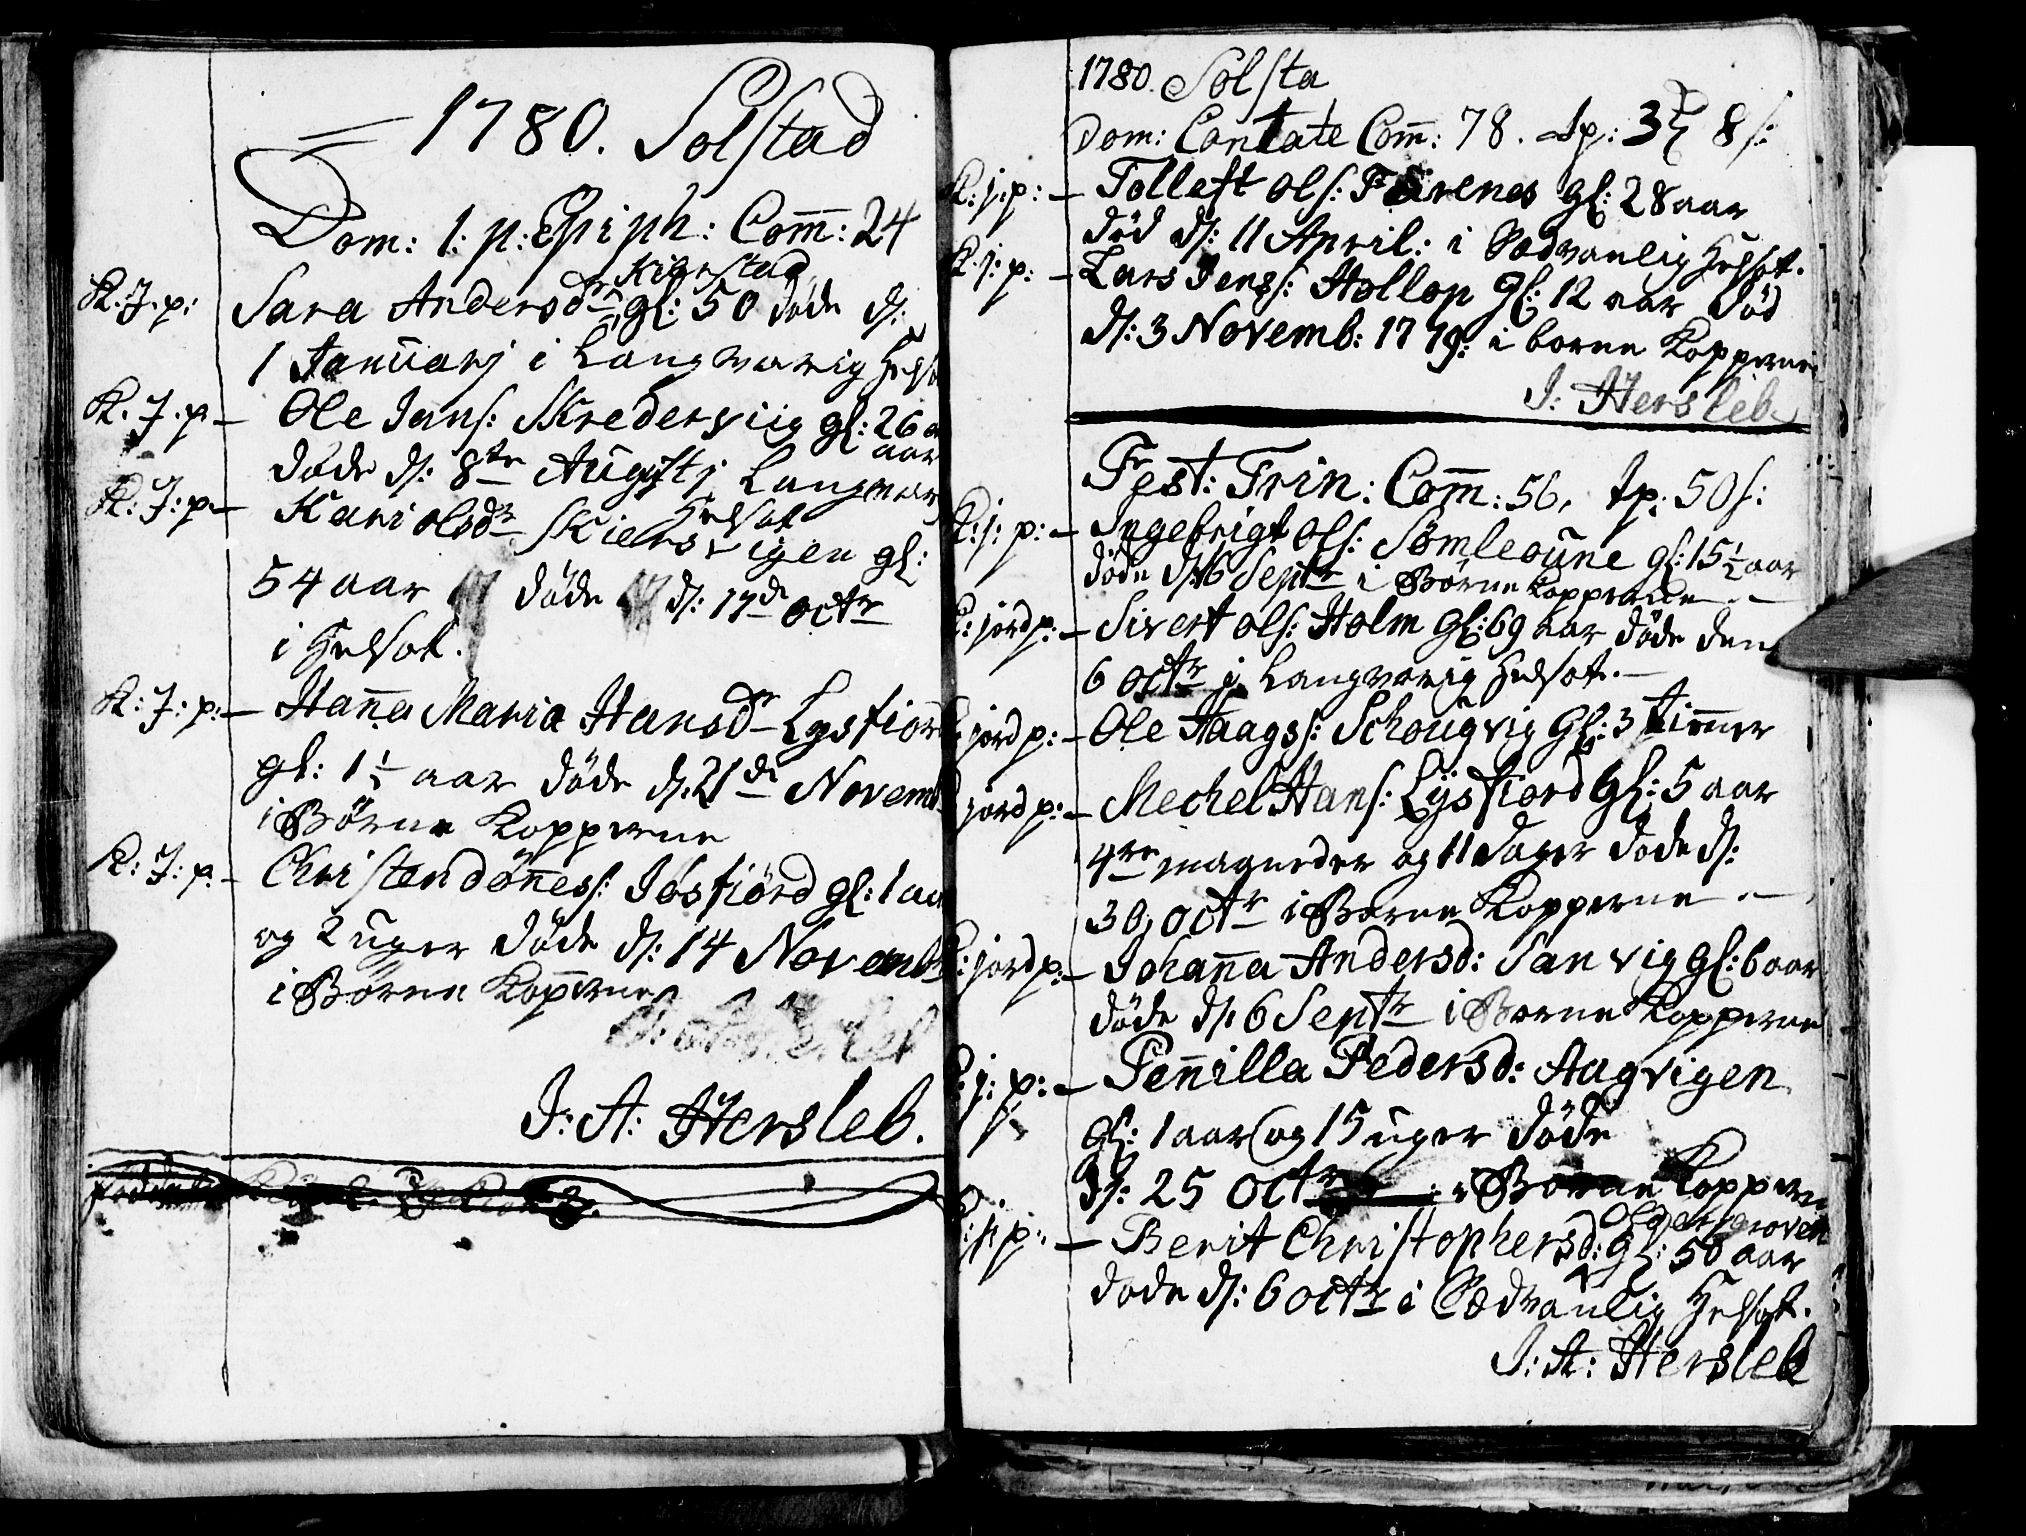 1780. Solstad
Dom: 1: p: Epiph: Com̅: 24
Kigestad
K. J. p: Sara Andersdr gl: 50 døde d:
1 Januarj i Langvarig Hels
K. J. p – Ole Jans: Skredersviig gl: 26
aar
døde d: 8de Augustj Langvar
Helsot
K: J: p – Kari olsdr Skiersvigen gl:
54 aar døde d: 17de octr
i Helsot.
K: J: p: – Han̅a Maria Hansdr Lysfiord
gl: 1½ aar døde d: 21de Novemb
i Børne Kopperne
K: J: p. – Christen dön̅ess: Josfiörd gl: 1 aa
og 2 uger døde d: 14 Novemb
i Børne Kopperne
J: A: Hersleb.
1780. Solsta
Dom: Cantate Com̅: 78. Tp: 3 8 s:
K: j: p: – Tolleft ols: Farenes gl: 28 aar
død d: 11 April: i Sædvanlig Helsot.
K. j: p: – Lars Jenss: Hollop gl: 12 aar død
d: 3 Novemb: 1779: i borne Kopperne
J: Hersleb.
Fest: Trin: Com̅: 56, Tp: 50 s:
K: j: p: – Ingebrigt ols: Sømleoüne gl: 15½ aar
døde d: 16 Septr i Børne Kopperne –
K: jord p: – Sivert ols: Holm gl: 69 aar døde den
6 octr i Langvarig Helsot. –
K: jord p: – Ole Haagss: Schougvig gl: 3 Tim̅er
jord p: – Mechel Hans: Lysfiord gl: 5 aar
4re magneder og 11 dager døde d:
30, octr i Borne Kopperne –
K: jord p: – Johan̅a Andersd: Sanvig gl: 6 aar
døde d: 6 Septr i Borne Kopperne
K: j: p: – Pen̅illa Pedersd: Aagvigen
gl: 1 aar og 15 uger døde
d: 25 octr i Borne Koppern
K: j: p: – Berit Christophersd: gl: 50 aar
døde d: 6 octr i Sædvanlig Helsot.
J: A: Hersleb